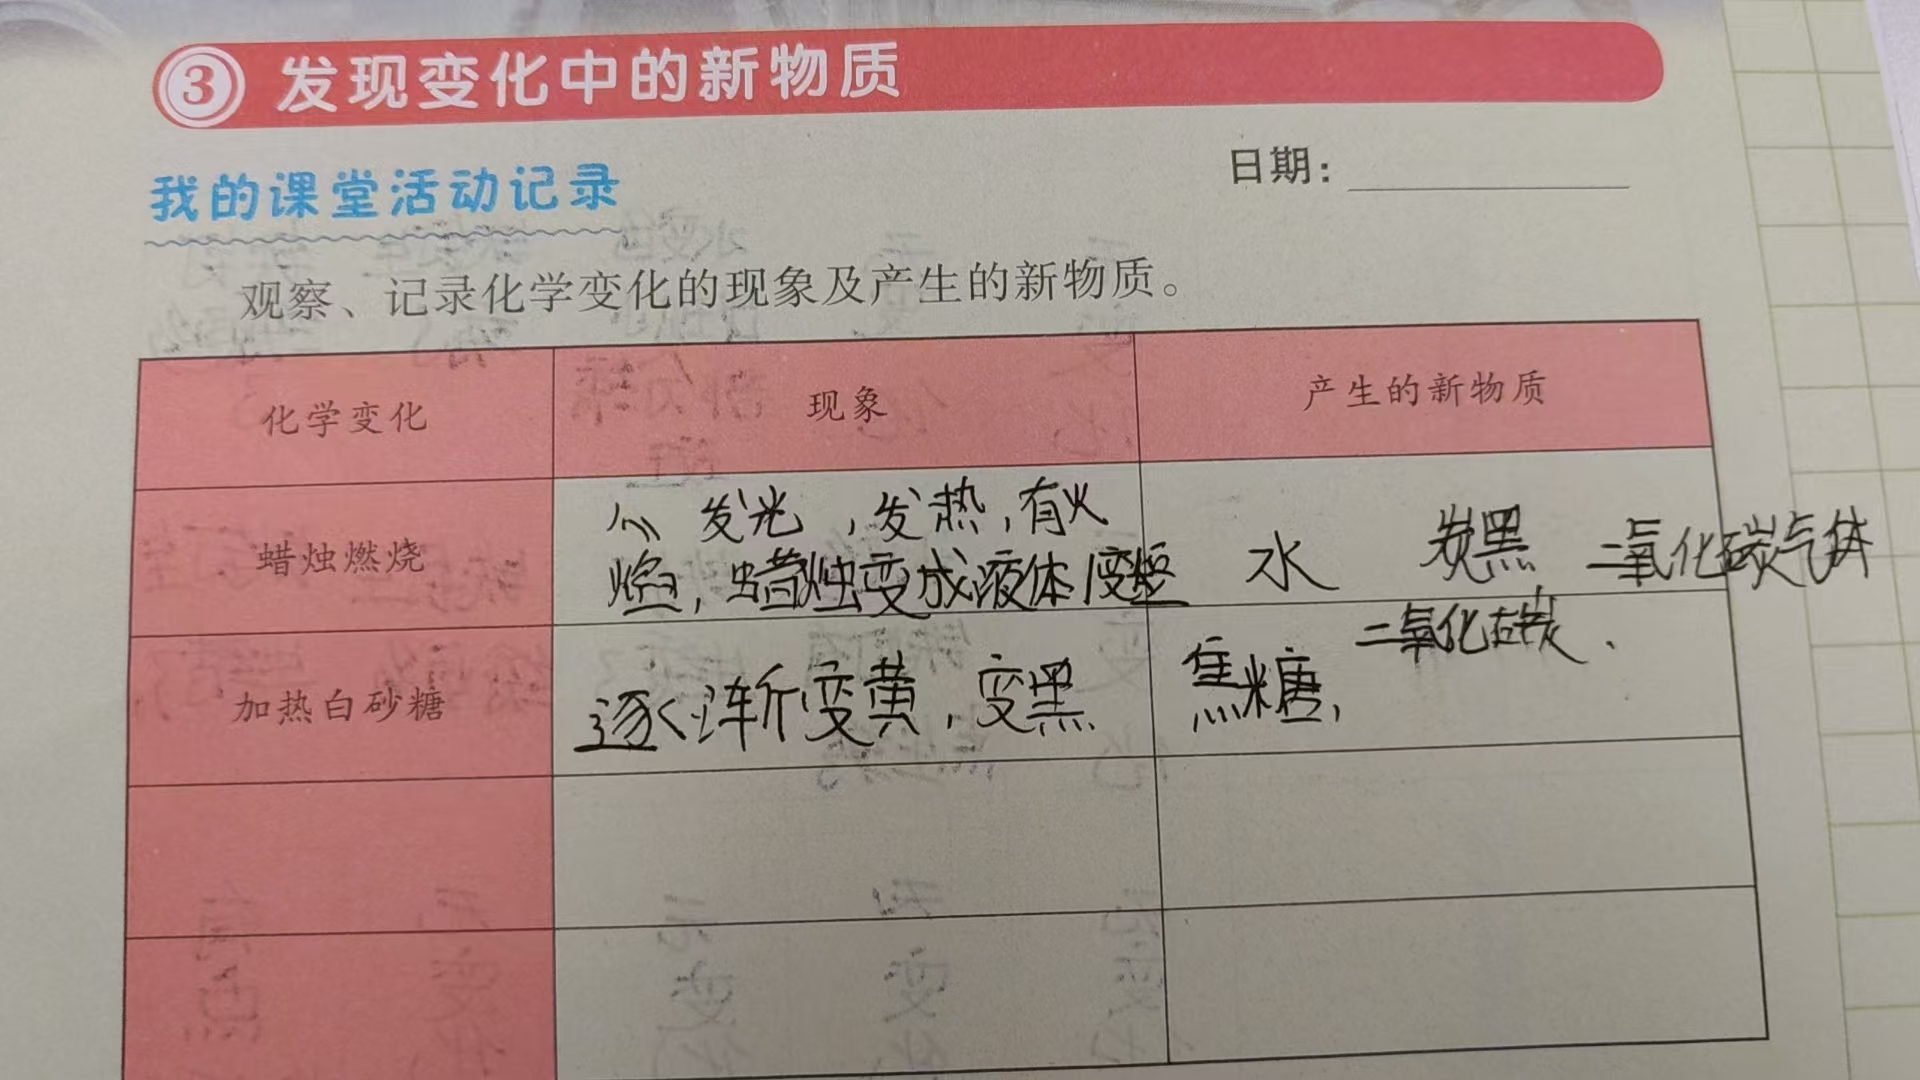 3 发现变化中的新物质
我的课堂活动记录
日期：
观察、记录化学变化的现象及产生的新物质。
化学变化 现象 产生的新物质
蜡烛燃烧
发光，发热，有火
焰，蜡烛变成液体 变短
水 炭黑 二氧化碳气体
加热白砂糖
逐渐变黄，变黑、
焦糖，
二氧化碳、